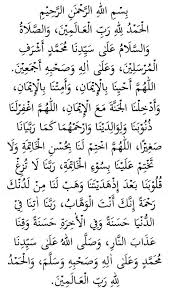 بِسْمِ اللهِ الرَّحْمَنِ الرَّحِيْمِ
الْحَمْدُ لِلَّهِ رَبِّ الْعَالَمِيْنَ، وَالصَّلَاةُ
وَالسَّلَامُ عَلَى سَيِّدِنَا مُحَمَّدٍ أَشْرَفِ
الْمُرْسَلِيْنَ، وَعَلَى آلِهِ وَصَحْبِهِ أَجْمَعِيْنَ.
اللَّهُمَّ أَحْيِنَا بِالْإِيْمَانِ، وَأَمِتْنَا بِالْإِيْمَانِ،
وَأَدْخِلْنَا الْجَنَّةَ مَعَ الْإِيْمَانِ، اللَّهُمَّ اغْفِرْلَنَا
ذُنُوْبَنَا وَلِوَالِدَيْنَا وَارْحَمْهُمَا كَمَا رَبَّيَانَا
صِغَارًا، اللَّهُمَّ اخْتِمْ لَنَا بِحُسْنِ الْخَاتِمَةِ وَلَا
تَخْتِمْ عَلَيْنَا بِسُوْءِ الْخَاتِمَةِ، رَبَّنَا لَا تُزِغْ
قُلُوْبَنَا بَعْدَ إِذْ هَدَيْتَنَا وَهَبْ لَنَا مِنْ لَدُنْكَ
رَحْمَةً إِنَّكَ أَنْتَ الْوَهَّابُ، رَبَّنَا آتِنَا فِي
الدُّنْيَا حَسَنَةً وَفِي الْآخِرَةِ حَسَنَةً وَقِنَا
عَذَابَ النَّارِ، وَصَلَّى اللهُ عَلَى سَيِّدِنَا
مُحَمَّدٍ وَعَلَى آلِهِ وَصَحْبِهِ وَسَلَّمَ، وَالْحَمْدُ
لِلَّهِ رَبِّ الْعَالَمِيْنَ.